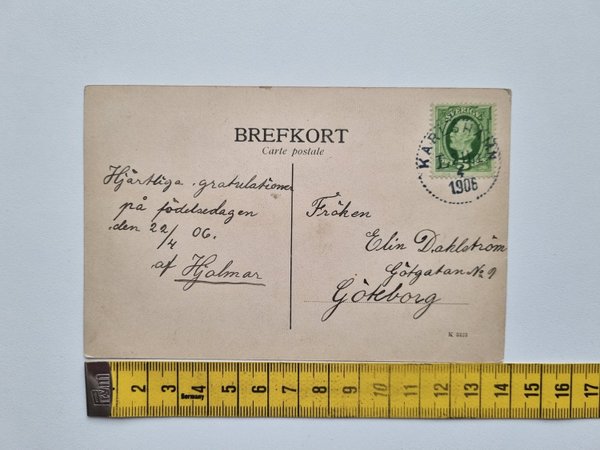 BREFKORT
Carte postale
Hjärtliga gratulationer
på födelsedagen
den 22/4 06.
af Hjalmar
SVERIGE
KARLSHAMN
1906
Fröken
Elin Dahlström
Götgatan No 9
Göteborg
2 3 4 5 6 7 8 9 10 11 12 13 14 15 16 17
Germany